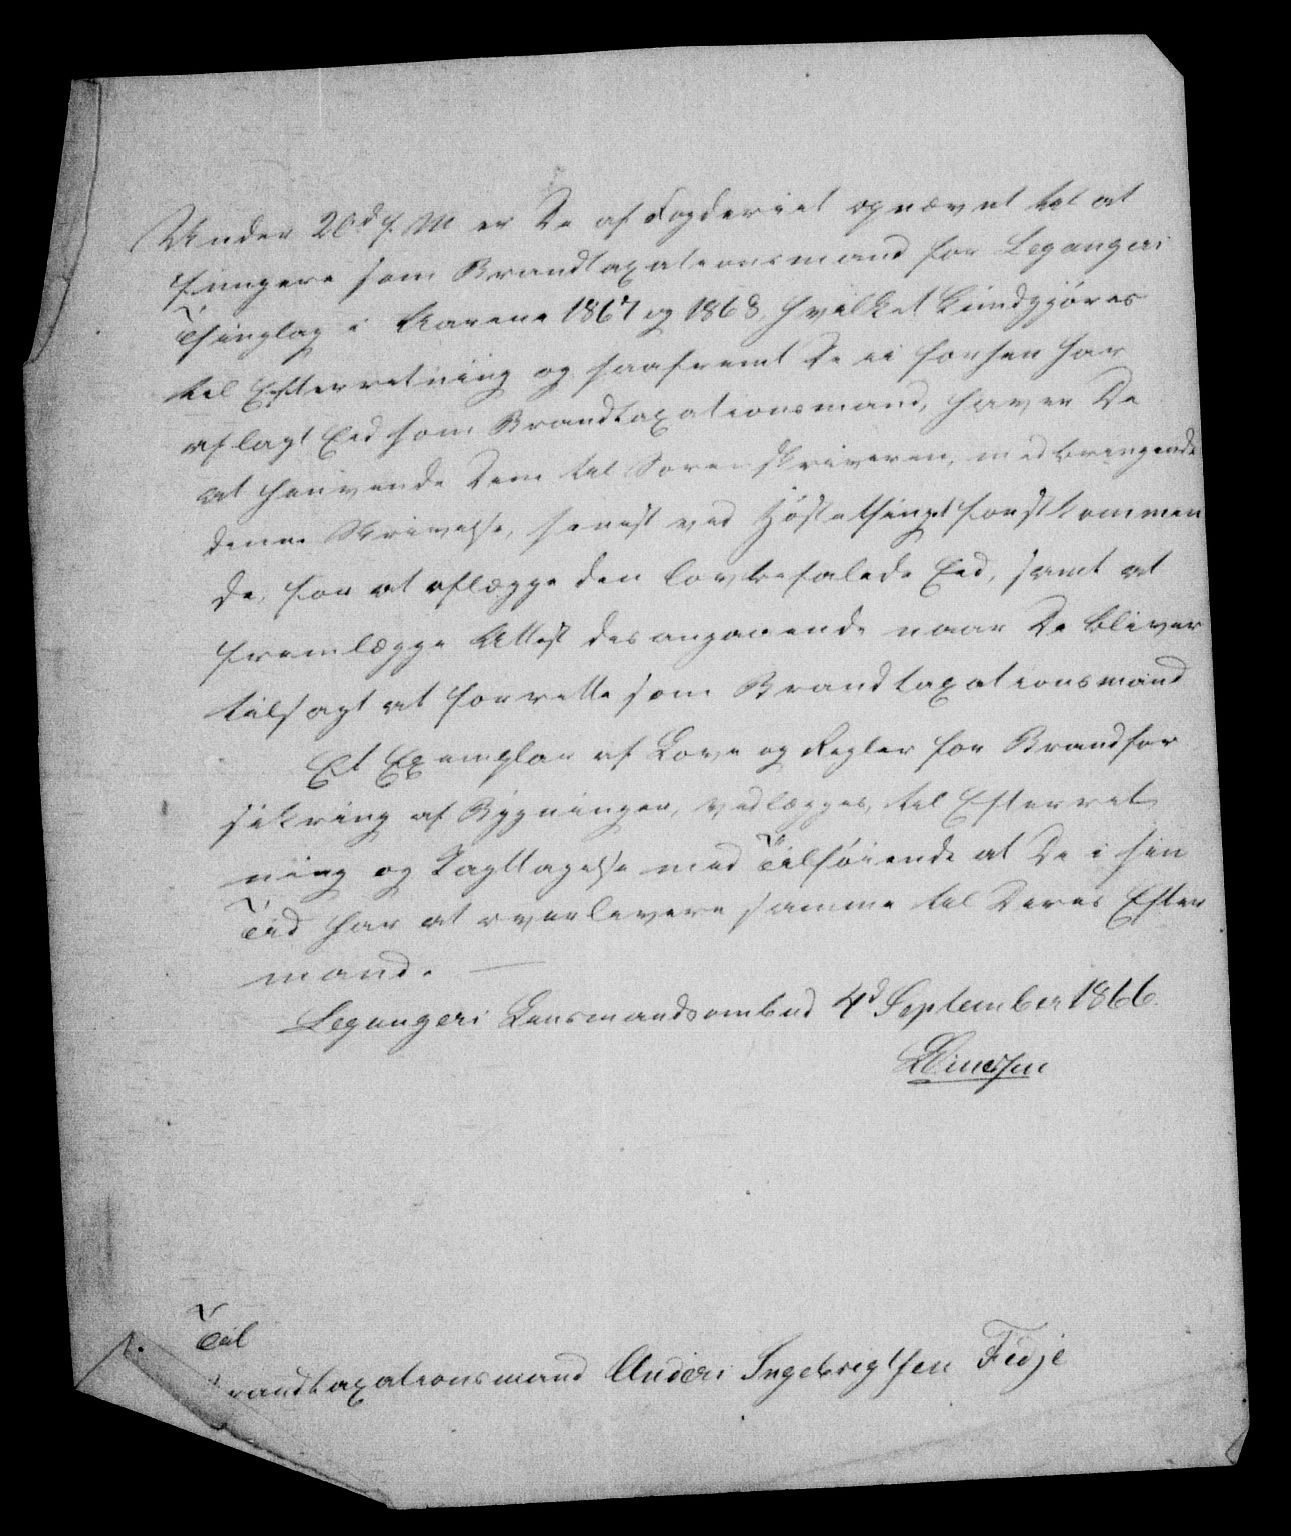 Under 20d f. M er De af Fogderiet opnævnt til at
fungere som Brandtaxationsmand for Leganger
Thinglag i Aarene 1867 og 1868, hvilket kundgjøres
til Efterretning og saafremt De ei forhen har
aflagt Eed som Brandtaxationsmand, haver De
at henvende Dem til Sorenskriveren, medbringende
denne Skrivelse, senest ved Høstethinget førstkommen
de, for at aflægge den lovbefalede Eed, samt at
fremlægge Attest desangaaende naar De bliver
tilsagt at forrette som Brandtaxationsmand
Et Exemplar af Love og Regler for Brandfor
sikring af Bygninger, vedlægges, til Efterret
ning og Iagttagelse med Tilføiende at De i sin
Tid har at overlevere samme til Deres Efter
mand.
Leganger Lensmandsombud 4d September 1866
Til
randtaxationsmand Anders Ingebrigtsen Fedje